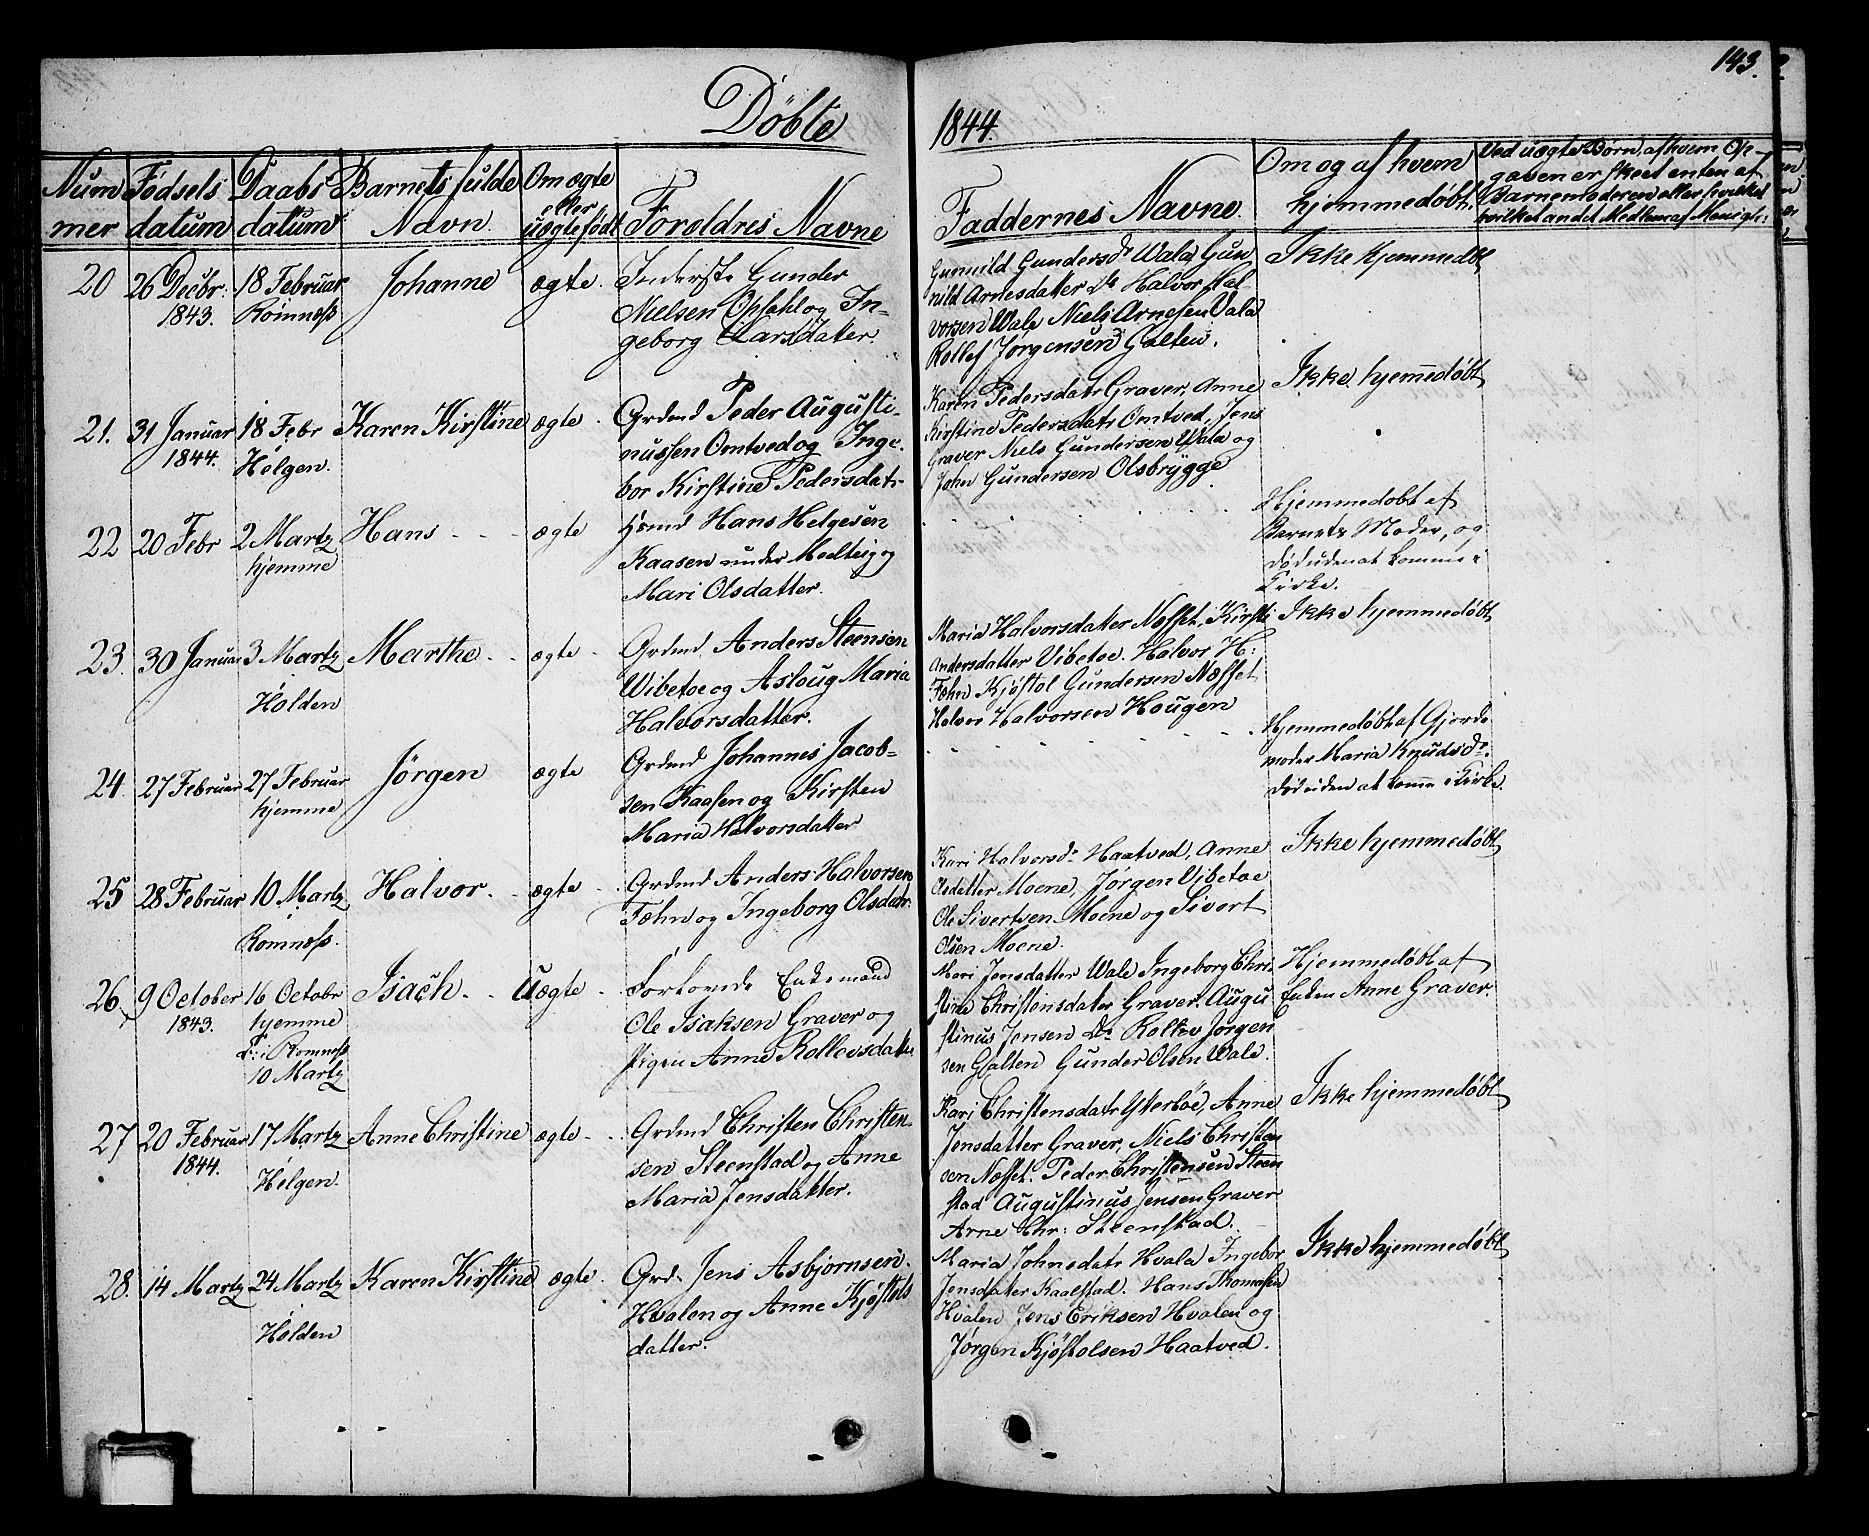 143.
Døbte
1844.
Num
mer
Fødsels
datum
Daabs
datum
Barnets fulde
Navn.
Om ægte
eller
uægte født
Foreldris Navne
Faddernes Navne.
Om og af hvem
hjemmedøbt.
Ved uægte Børn, af hvem Op-
gaven er skeet enten af
Barnemoderen eller hvilket
hvilket andet Medlem af Menigh:
20
26 Decbr.
1843.
18 Februar
Romness
Johanne
ægte.
Inderste Gunder
Nielsen Opsahl og In-
geborg Larsdatter.
Gunnild Gundersdr Wala Gun
nild Arnesdatter Do Halvor Hal-
vorsen Wale Niels Arnesen Vala
Rollef Jørgensen Galten.
Ikke hjemmedbt
21.
31 Januar
1844.
18 Febr
Helgen.
Karen Kirstine
ægte.
Grdmd Peder Augusti-
nussen Omtved og Inge-
bor Kirstine Pedersdatr
Karen Pedersdatr Graver, Anne
Kirstine Pedersdatr Omtved, Jens
Graver Niels Gundersen Wala og
John Gundersen Olsbrygge
Ikke hjemmedøbt
22
20 Febr
2 Martz
hjemme
Hans
ægte
Hans Helgesen
Kaasen under
Mari Olsdatter.
Hjemmedobt af
Barnets Moder, og
død uden at komme i
Kirke.
23.
30 Januar
3 Martz
Holden
Marthe
ægte
Grdmd Anders Steensen
Wibetoe og Asloug Maria
Halvorsdatter.
Maria Halvorsdatter Næsset, Kirsti
Andersdatter Vibetoe. Halvor H:
Fæhn Kjøstol Gundersen Næsset
Halvor Halvorsen Hougen
Ikke hjemmedøbt
24.
27 Februar
27 Februar
hjemme
Jørgen
ægte
Grdmd Johannes Jacob-
sen Kaasen og Kirsten
Maria Halvorsdatter
Hjemmedøbt af Gjorde-
moder Maria Knudsdr.
død uden at komm i Kirke.
25
28 Februar
10 Martz
Romness.
Halvor.
ægte
Grdmd Anders Halvorsen
Fæhn og Ingeborg Olsdatr.
Kari Halvorsdr Haatved, Anne
Olsdatter Moene, Jørgen Vibetoe
Ole Sivertsen Moene og Sivert
Olsen Moene.
Ikke hjemmedøbt
26
9 October
1843.
16 Octobr
hjemme
d: i Romness
10 Martz
Isach.
Uægte
Forlovede Enkemand
Ole Isaksen Graver og
Pigen Anne Rollevsdatter
Mari Jensdatter Wale Ingeborg Chri-
stine Christensdater Graver. Augu
stinus Jensen Do Rollev Jørgen
sen Galten Gunder Olsen Wale.
Hjemmedøbt af
Enken Anne Graver.
27
20 Februar
1844.
17 Martz
Helgen.
Anne Christine
ægte
Grdmd Christen Christen-
sen Steenstad og Anne
Maria Jensdatter.
Kari Christensdatr Ytterbøe, Anne
Jensdatter Graver, Niels Christen
sen Næsset. Peder Christensen Steen
stad Augustinus Jensen Graver
Arne Chr: Steenstad.
Ikke hjemmedøbt
28.
14 Martz
24 Martz
Holden
Karen Kirstine
ægte.
Grd. Jens Asbjørnsen
Hvalen og Anne Kjøstols
datter.
Maria Johnsdatr Hvala Ingebor
Jensdater Kaalstad. Hans Thomasen
Hvalen Jens Eriksen Hvalen og
Jørgen Kjøstolsen Haatved.
Ikke hjemmedøbt